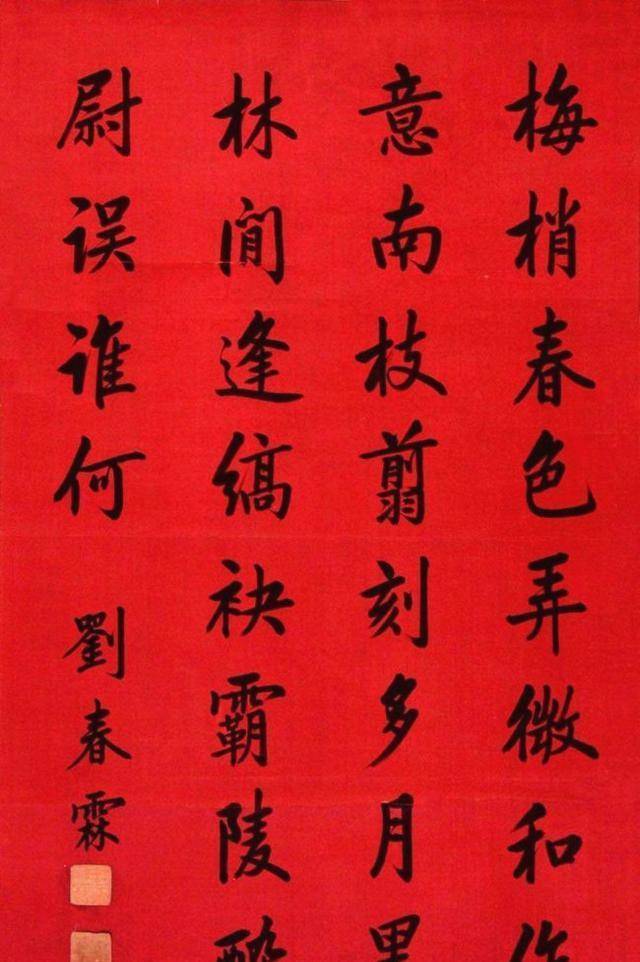 梅梢春色弄微和作
意南枝翦刻多月黑
林间逢缟袂霸陵醉
尉误谁何
劉春霖